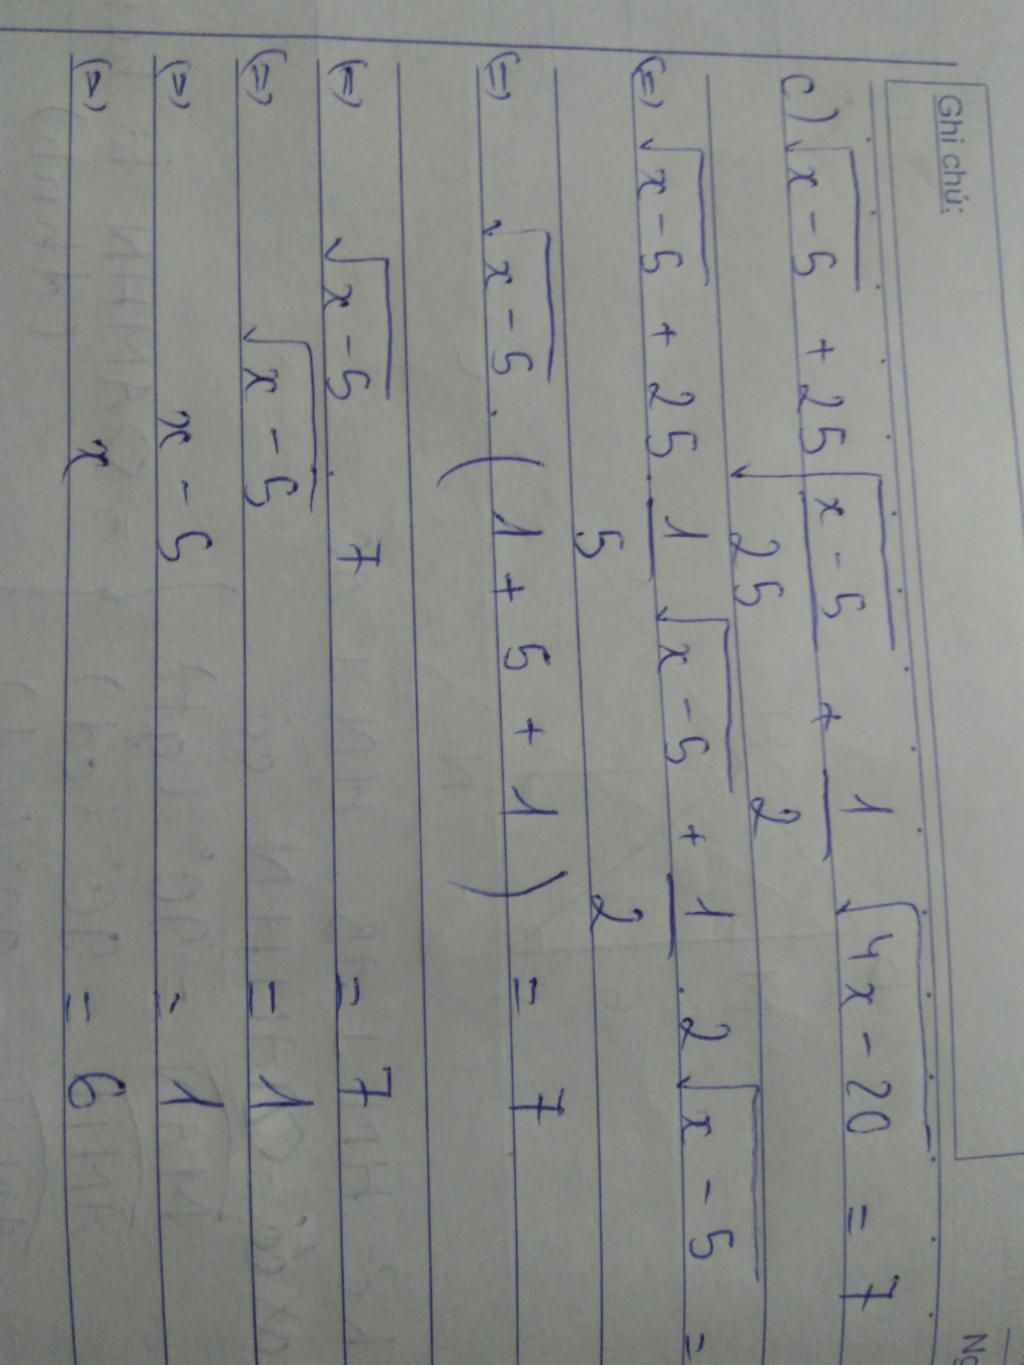 Ghi chú:
c) √(x-5) + 25√((x-5)/25) + 1/2 √(4x-20) = 7
(=) √(x-5) + 25 . 1/5 √(x-5) + 1/2 . 2√(x-5) =
(=) √(x-5) . (1 + 5 + 1) = 7
(=) √(x-5) . 7 = 7
(=) √(x-5) = 1
(=) x - 5 = 1
(=) x = 6